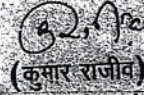 (कुमार राजीव)